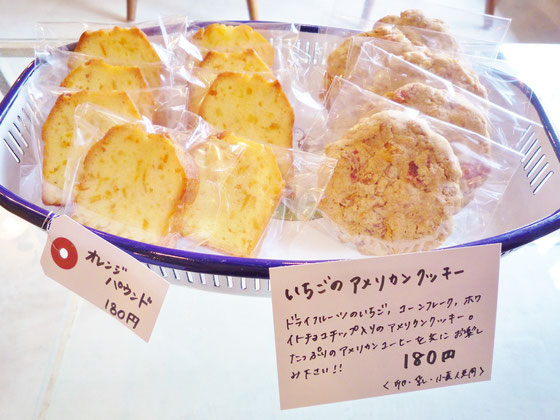 オレンジ
パウンド
180円
いちごのアメリカンクッキー
ドライフルーツのいちご、コーンフレーク、ホワ
イトチョコチップ入りのアメリカンクッキー。
たっぷりのアメリカンコーヒーを共にお楽し
み下さい!!
180円
<卵・乳・小麦 使用>